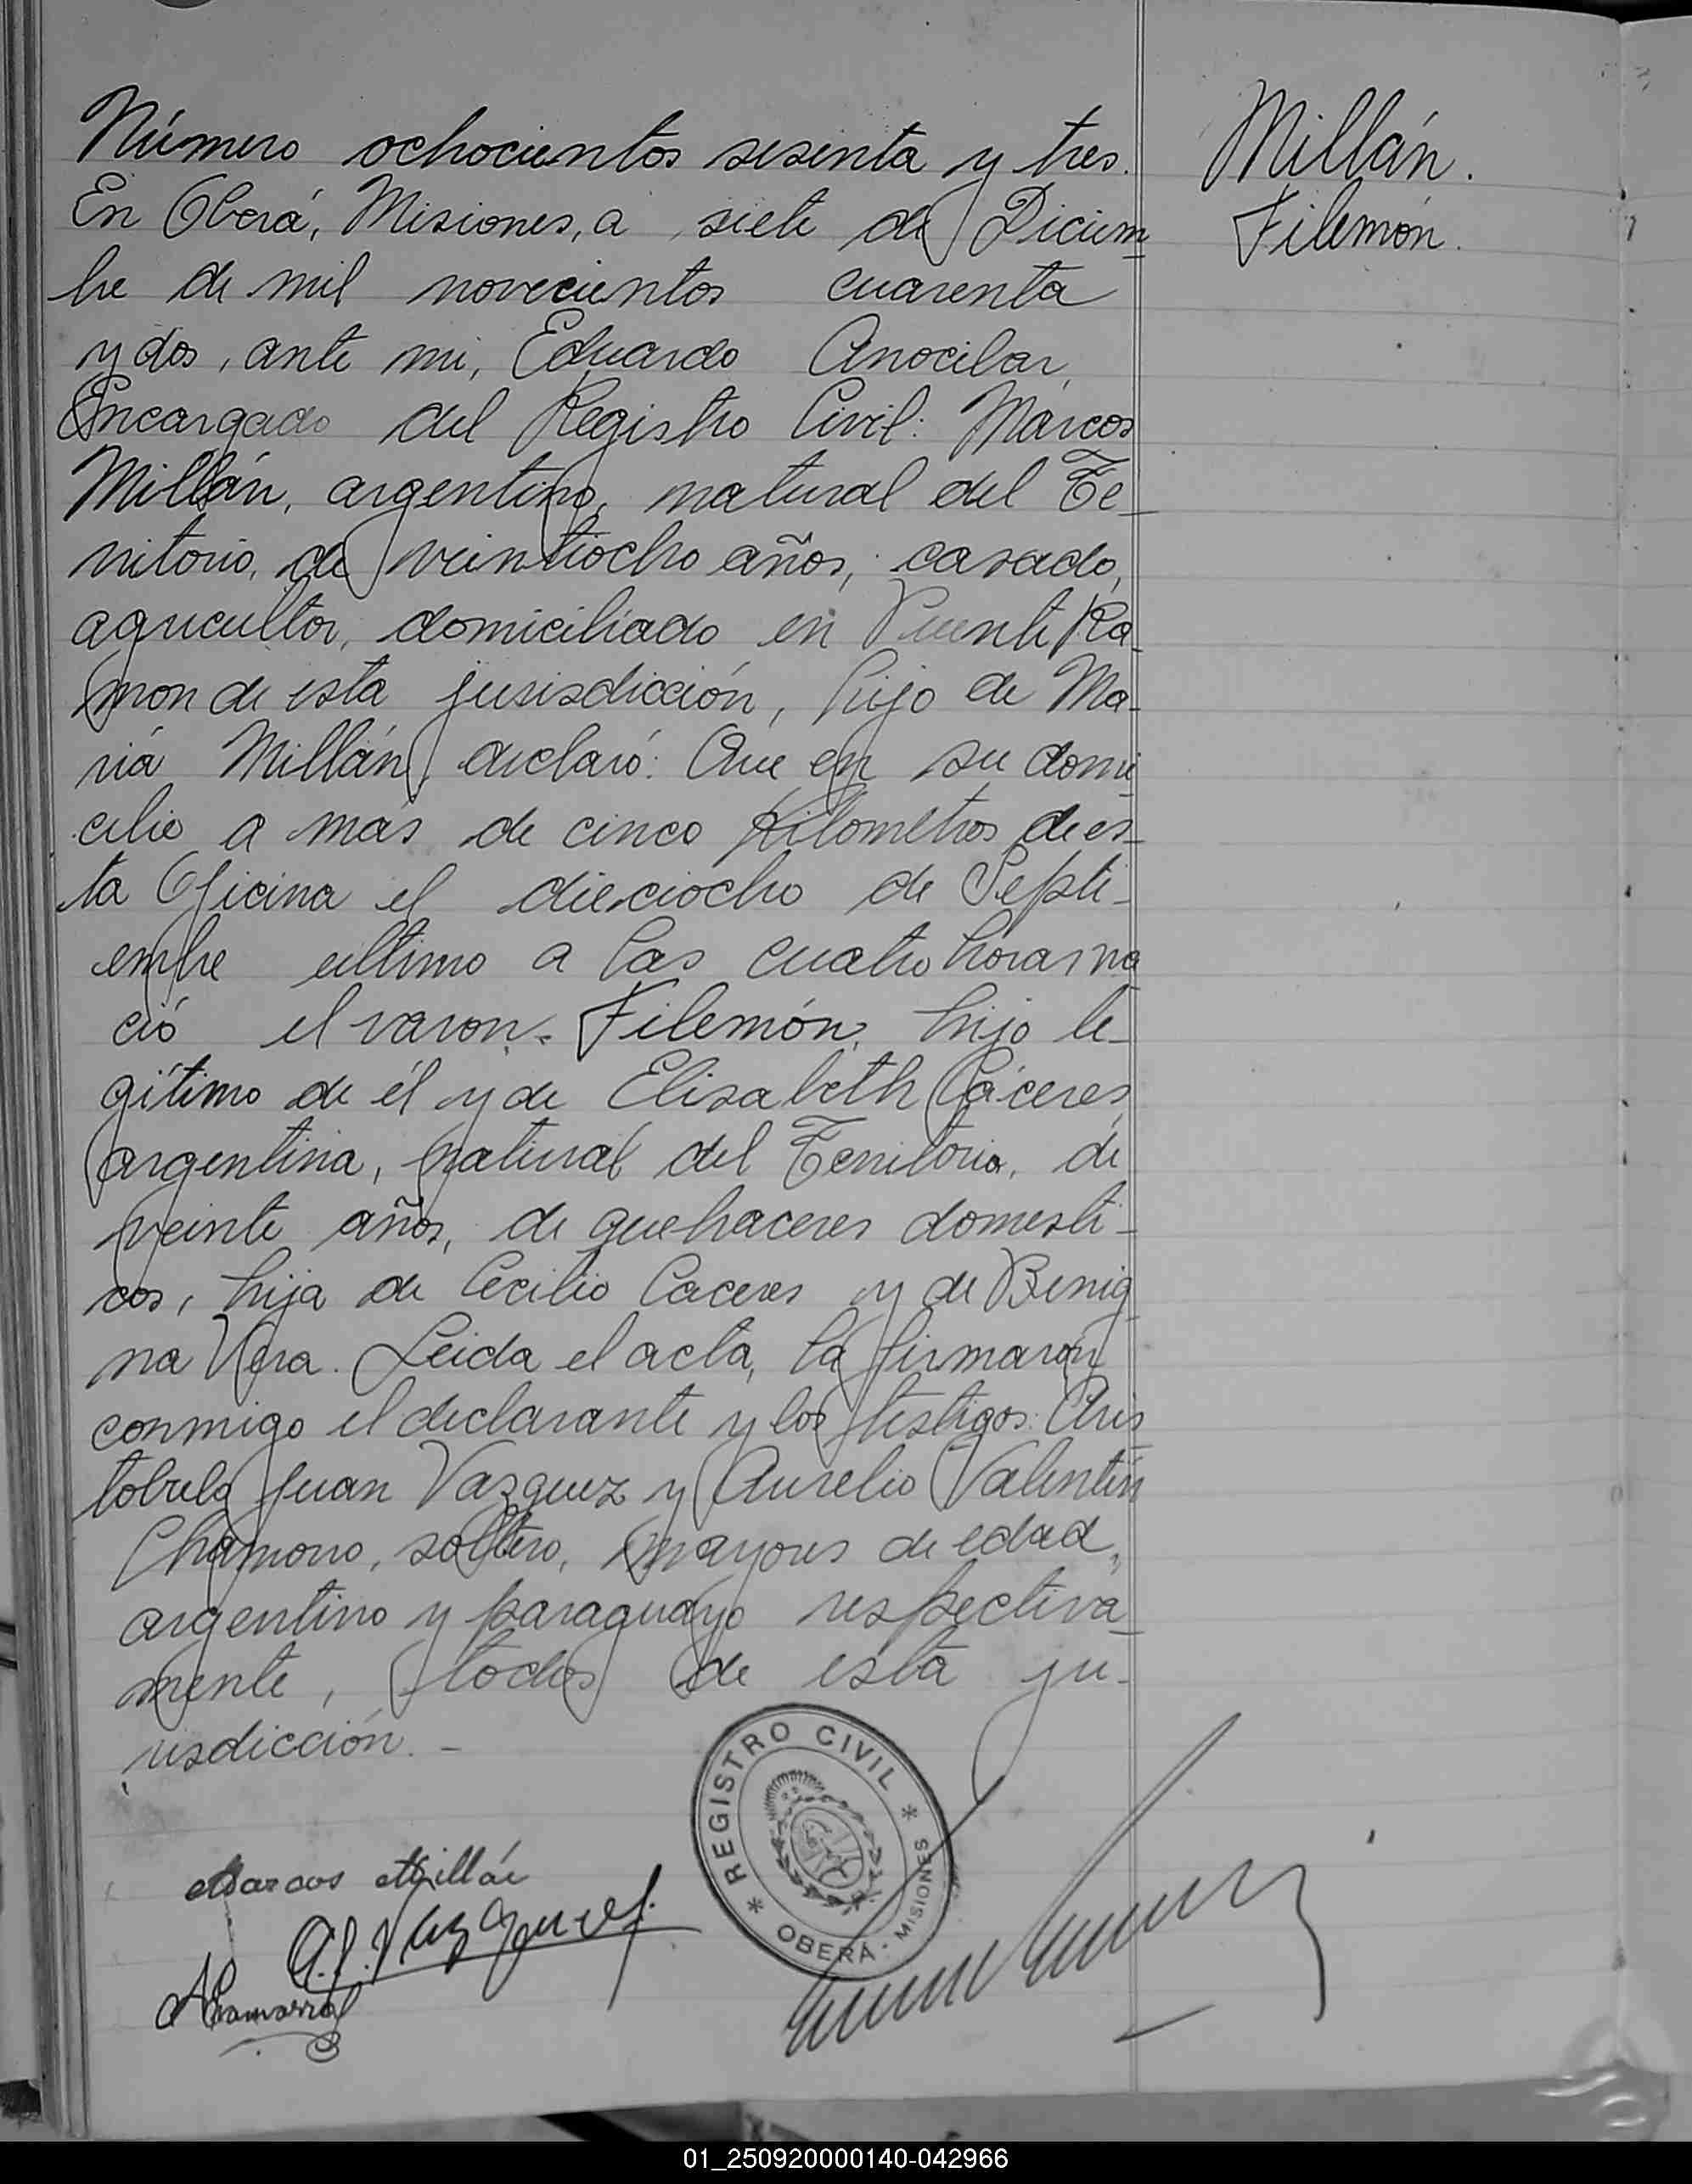 Número ochocientos sesenta y tres.
Millán.
Filemón.
En Oberá, Misiones, a siete de Diciem-
bre de mil novecientos cuarenta
y dos, ante mi, Eduardo Anocibar,
Encargado del Registro Civil: Marcos
Millán, argentino, natural del Te-
rritorio, de veintiocho años, casado,
agricultor, domiciliado en Puente Ra-
mon de esta jurisdicción, hijo de Ma-
ria Millán, declaró: Que en su domi-
cilio a mas de cinco Kilometros de es-
ta Oficina el dieciocho de Septi-
embre ultimo a las cuatro horas na
ció el varon Filemón, hijo le-
gítimo de él y de Elisabeth Cáceres,
argentina, natural del Territorio, de
veinte años, de quehaceres domesti-
cos, hija de Cecilio Caceres y de Benig
na Vera. Leida el acta, la firmaron
conmigo el declarante y los testigos: Aris
tobulo Juan Vazquez y Aurelio Valentin
Chamorro, soltero, mayores de edad,
argentino y paraguayo respectiva-
mente, todos de esta ju-
risdicción. -
REGISTRO CIVIL
OBERÁ - MISIONES
Marcos Millán
A.J. Vazquez
AChamorro
01_250920000140-042966